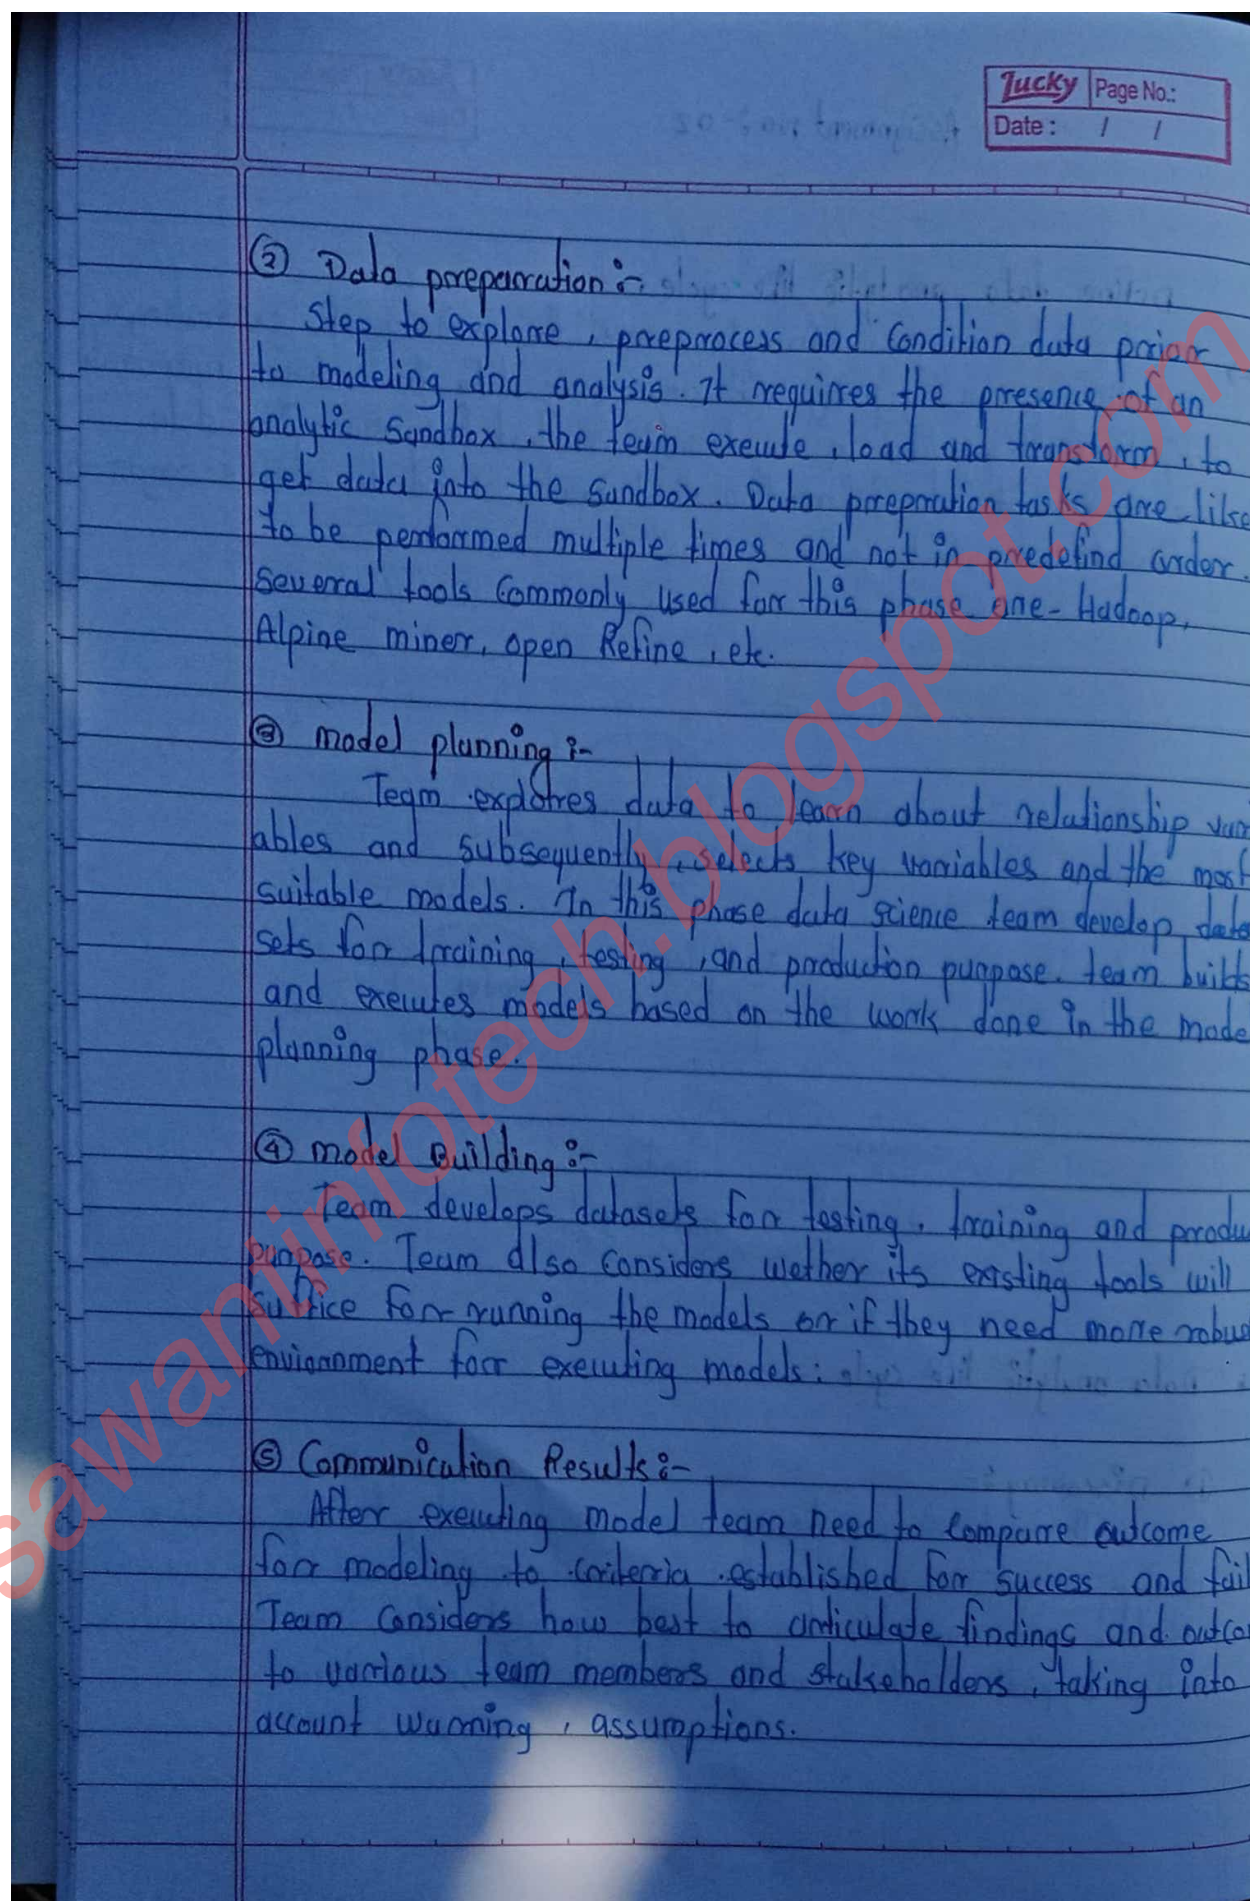 Lucky Page No.:
Date : / /
② Data preparation :-
Step to explore , preprocess and condition data prior
to modeling and analysis. It requires the presence of an
analytic Sandbox , the team execute , load and transform , to
get data into the sandbox. Data prepration tasks are like
to be performed multiple times and not in predefind order.
several tools commonly used for this phase are - Hadoop,
Alpine miner, open Refine , etc.
③ model planning :-
Team explores data to learn about relationship vari
ables and subsequently , selects key variables and the most
suitable models. In this phase data science team develop data
sets for training , testing , and production purpose. team builds
and executes models based on the work done in the mode
planning phase.
④ model Building :-
Team develops datasets for testing , training and produ
purpose. Team also considers wether its existing tools will
suffice for running the models or if they need more robus
envionment for executing models :
⑤ Communication Results :-
After executing model team need to compare outcome
for modeling to criteria established for success and fail
Team considers how best to articulate findings and outco
to various team members and stakeholders , taking into
account warning , assumptions.
sawantinfotech.blogspot.com